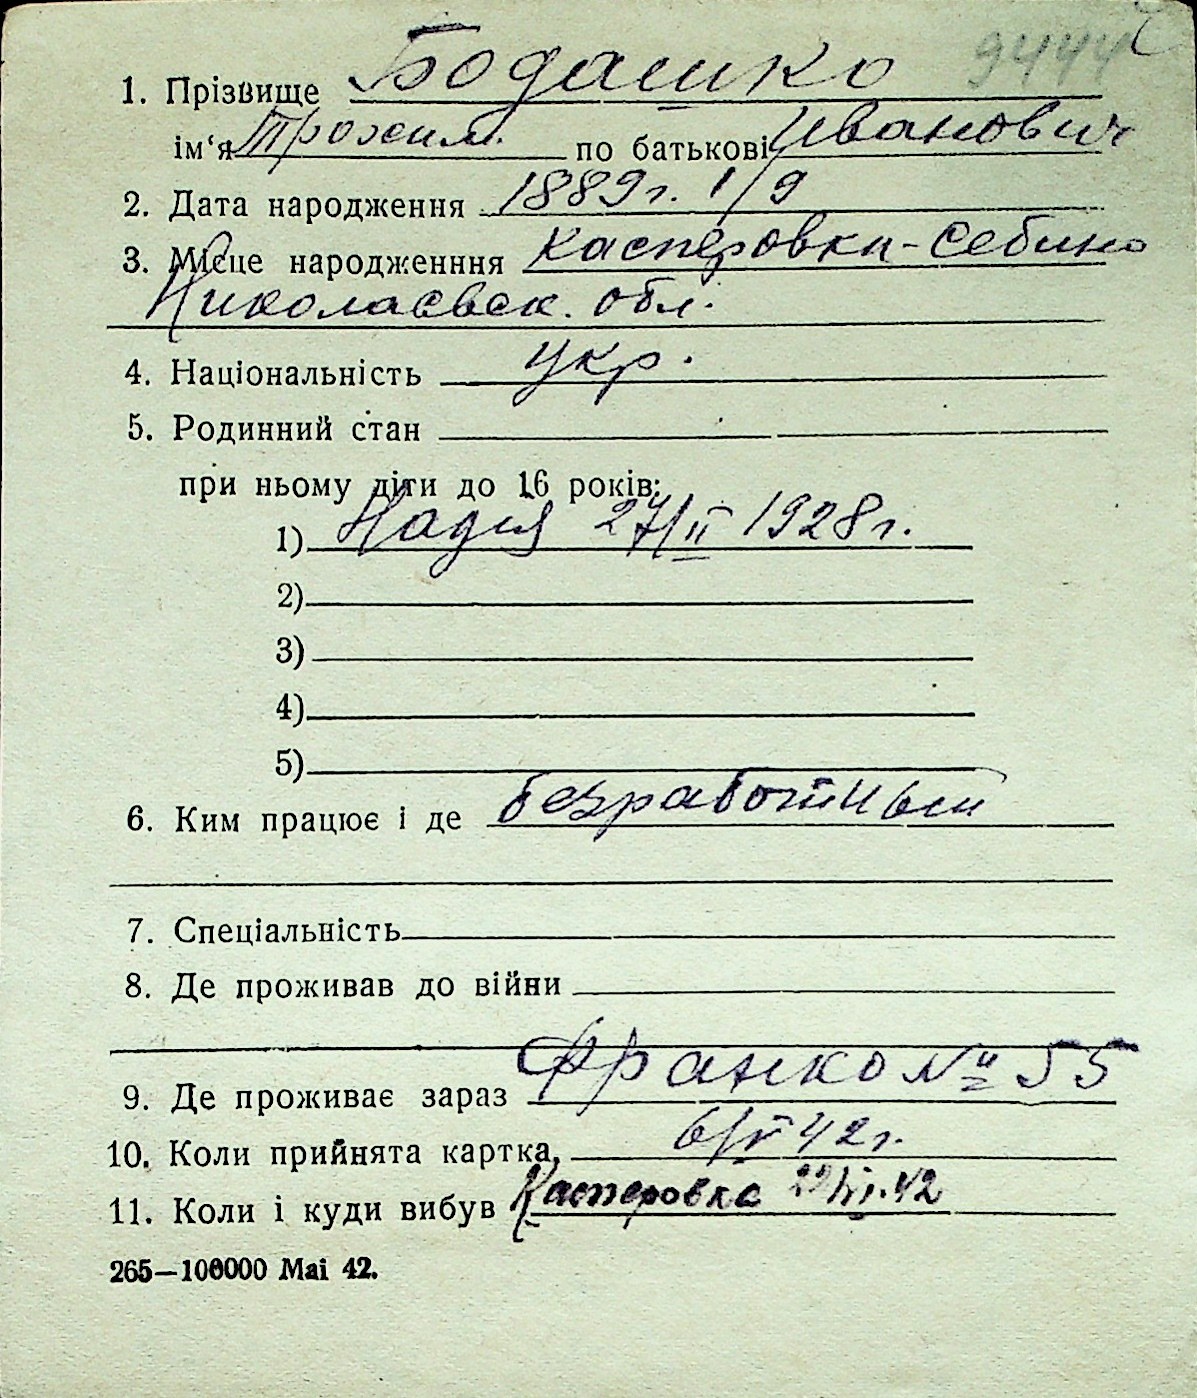 9444
1. Прізвище Бодашко
ім‘я Трохим. по батькові Иванович
2. Дата народження 1889г. 1/9
3. Місце народженння Касперовки-Себино
Николаевск. обл.
4. Національність укр.
5. Родинний стан
при ньому діти до 16 років:
1) Надия 27/II 1928г.
2)
3)
4)
5)
6. Ким працює і де безработный
7. Спеціальність
8. Де проживав до війни
9. Де проживає зараз Франко № 55
10. Коли прийнята картка, 6/V 42г.
11. Коли і куди вибув Касперовка
265—100000 Mai 42.